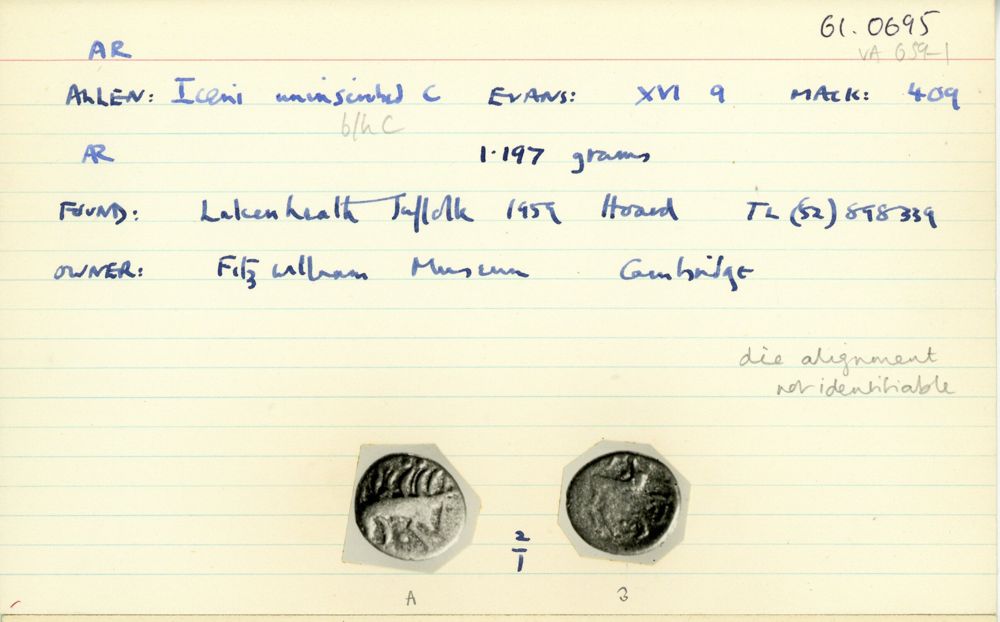 61.0695
AR
VA 659-1
ALLEN: Iceni uninscribed C EVANS: XVI 9 MACK: 409
b/h C
AR 1.197 grams
FOUND: Lakenheath Suffolk 1959 Hoard TL (52) 898339
OWNER: Fitzwilliam Museum Cambridge
die alignment
not identifiable
2
1
A B